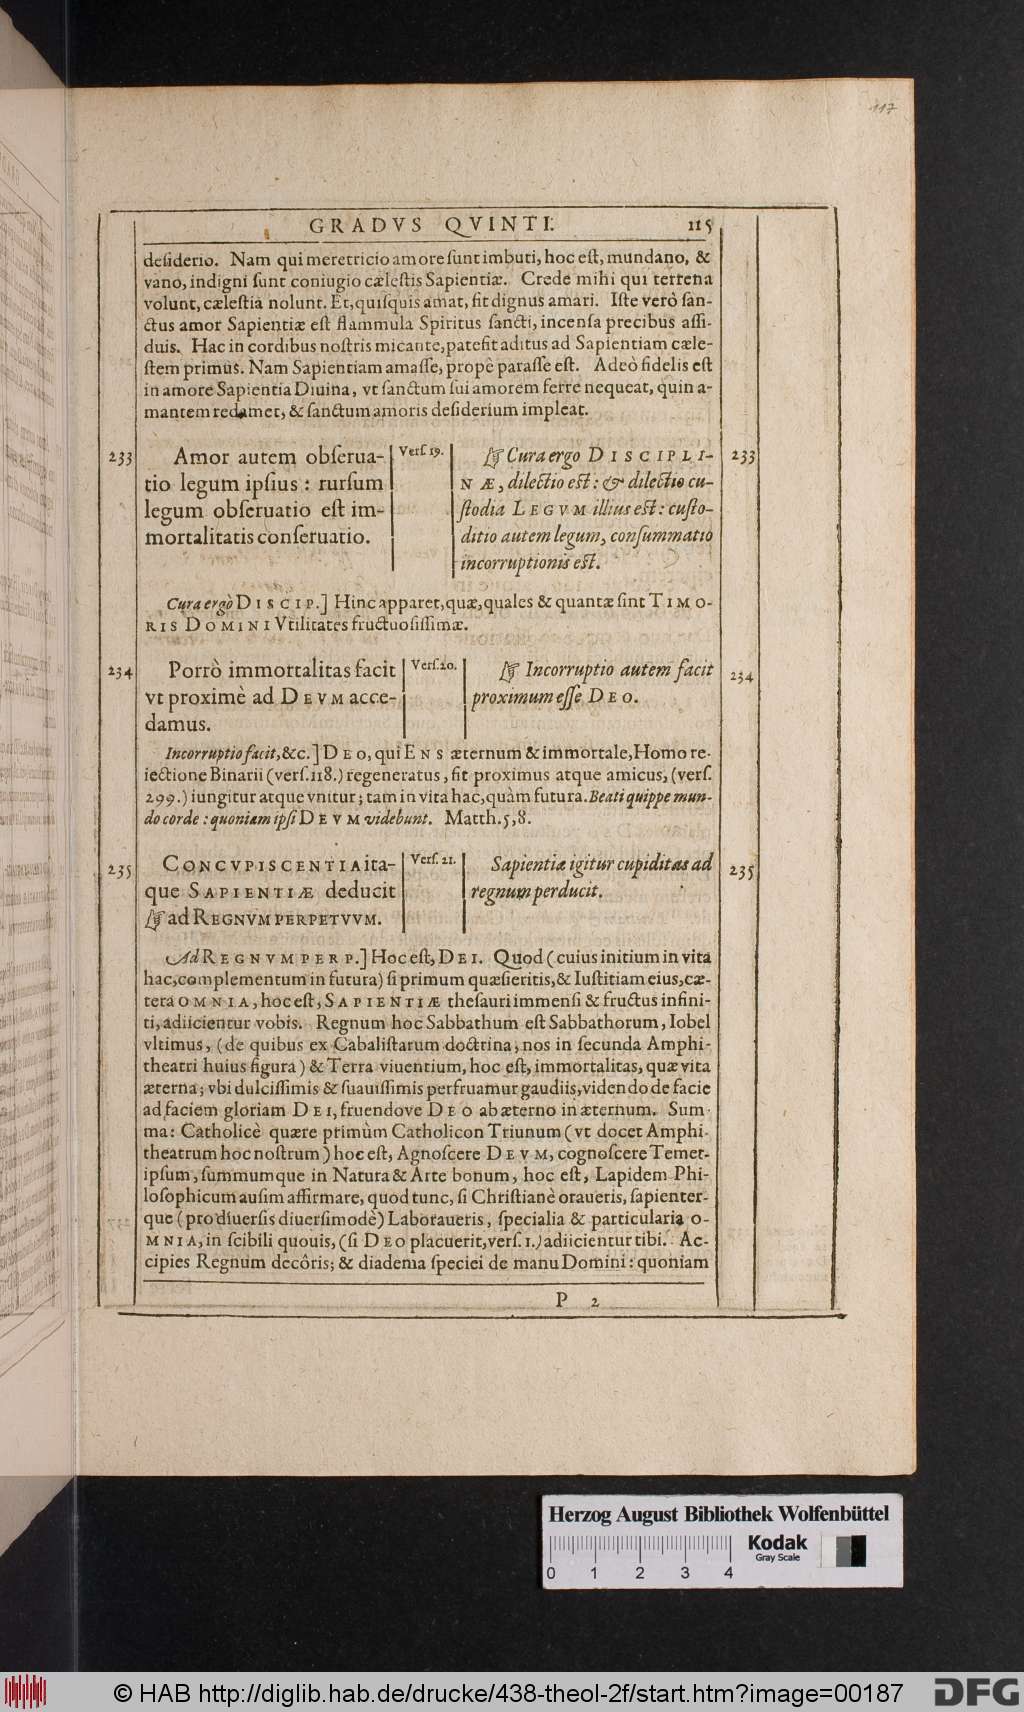 117
GRADVS QVINTI. 115
deſiderio. Nam qui meretricio amore ſunt imbuti, hoc eſt, mundano, &
vano, indigni ſunt coniugio cæleſtis Sapientiæ. Crede mihi qui terrena
volunt, cæleſtia nolunt. Et, quiſquis amat, ſit dignus amari. Iſte verò ſan-
ctus amor Sapientiæ eſt flammula Spiritus ſancti, incenſa precibus aſſi-
duis. Hac in cordibus noſtris micante, pateſit aditus ad Sapientiam cæle-
ſtem primus. Nam Sapientiam amaſſe, propè paraſſe eſt. Adeò fidelis eſt
in amore Sapientia Diuina, vt ſanctum ſui amorem ferre nequeat, quin a-
mantem redamet, & ſanctum amoris deſiderium impleat.
233
Amor autem obſerua-
tio legum ipſius : rurſum
legum obſeruatio eſt im-
mortalitatis conſeruatio.
Verſ 19.
☞ Cura ergo DISCIPLI-
NÆ, dilectio eſt : & dilectio cu-
ſtodia LEGVM illius eſt : cuſto-
ditio autem legum, conſummatio
incorruptionis eſt.
233
Cura ergò DISCIP.] Hinc apparet, quæ, quales & quantæ ſint TIMO-
RIS DOMINI Vtilitates fructuoſiſſimæ.
234
Porrò immortalitas facit
vt proximè ad DEVM acce-
damus.
Verſ. 20.
☞ Incorruptio autem facit
proximum eſſe DEO.
234
Incorruptio facit, &c.] DEO, qui ENS æternum & immortale, Homo re-
iectione Binarii (verſ. 118.) regeneratus, fit proximus atque amicus, (verſ.
299.) iungitur atque vnitur; tam in vita hac, quàm futura. Beati quippe mun-
do corde : quoniam ipſi DEVM videbunt. Matth. 5, 8.
235
CONCVPISCENTIA ita-
que SAPIENTIÆ deducit
☞ ad REGNVM PERPETVVM.
Verſ. 21.
Sapientiæ igitur cupiditas ad
regnum perducit.
235
Ad REGNVM PERP.] Hoc eſt, DEI. Quod (cuius initium in vita
hac, complementum in futura) ſi primum quæſieritis, & Iuſtitiam eius, cæ-
tera OMNIA, hoc eſt, SAPIENTIÆ theſauri immenſi & fructus infini-
ti, adiicientur vobis. Regnum hoc Sabbathum eſt Sabbathorum, Iobel
vltimus, (de quibus ex Cabaliſtarum doctrina, nos in ſecunda Amphi-
theatri huius figura) & Terra viuentium, hoc eſt, immortalitas, quæ vita
æterna; vbi dulciſſimis & ſuauiſſimis perfruamur gaudiis, videndo de facie
ad faciem gloriam DEI, fruendove DEO ab æterno in æternum. Sum-
ma: Catholicè quære primùm Catholicon Triunum (vt docet Amphi-
theatrum hoc noſtrum) hoc eſt, Agnoſcere DEVM, cognoſcere Temet-
ipſum, ſummumque in Natura & Arte bonum, hoc eſt, Lapidem Phi-
loſophicum auſim affirmare, quod tunc, ſi Chriſtianè oraueris, ſapienter-
que (pro diuerſis diuerſimodè) Laboraueris, ſpecialia & particularia O-
MNIA, in ſcibili quouis, (ſi DEO placuerit, verſ. 1.) adiicientur tibi. Ac-
cipies Regnum decôris; & diadema ſpeciei de manu Domini : quoniam
P 2
Herzog August Bibliothek Wolfenbüttel
Kodak
Gray Scale
0 1 2 3 4
© HAB http://diglib.hab.de/drucke/438-theol-2f/start.htm?image=00187
DFG